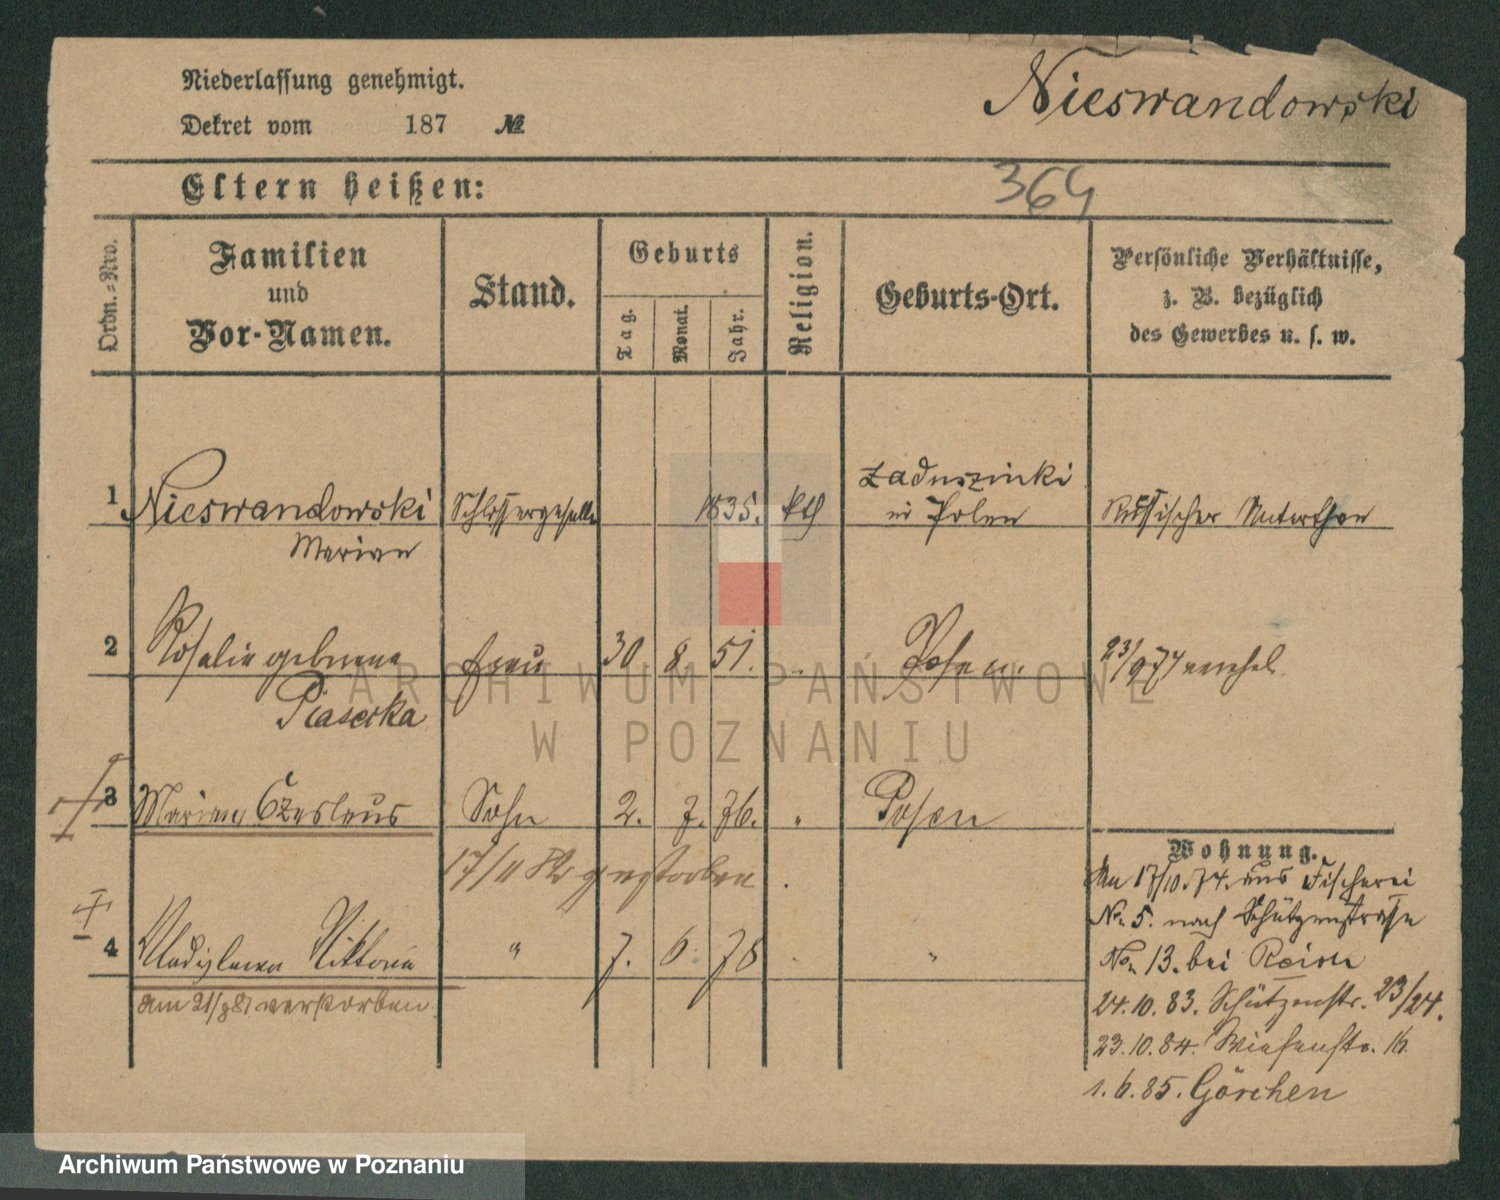 Niederlassung genehmigt.
Nieswandowski
Dekret vom 187 №
Eltern heißen:
364
Ordn.-Nro.
Familien
und
Vor-Namen.
Stand.
Geburts
Tag.
Monat.
Jahr.
Religion.
Geburts-Ort.
Persönliche Verhältnisse,
z. B. bezüglich
des Gewerbes u. s. w.
1 Nieswandowski Schlossergeselle 1835. kth Zaduszniki
in Polen Russischer Unterthan
Marian
2 Rosalie geborene Frau 30 8. 51. Posen. 23/9 74
Piasecka
3 Marian Czeslaus Sohn 2. 7. 76. " Posen
17/11 82 gestorben.
4 Wladislawa Viktoria " 7. 6. 78 "
am 21/8 81 verstorben.
Wohnung.
Am 17/10.74. aus Fischerei
No. 5. nach Schützenstraße
No. 13. bei
24.10.83. Schützenstr. 23/24.
23.10.84. Wiesenstr. 16.
1.6.85. Görchen
ARCHIWUM PAŃSTWOWE
W POZNANIU
Archiwum Państwowe w Poznaniu